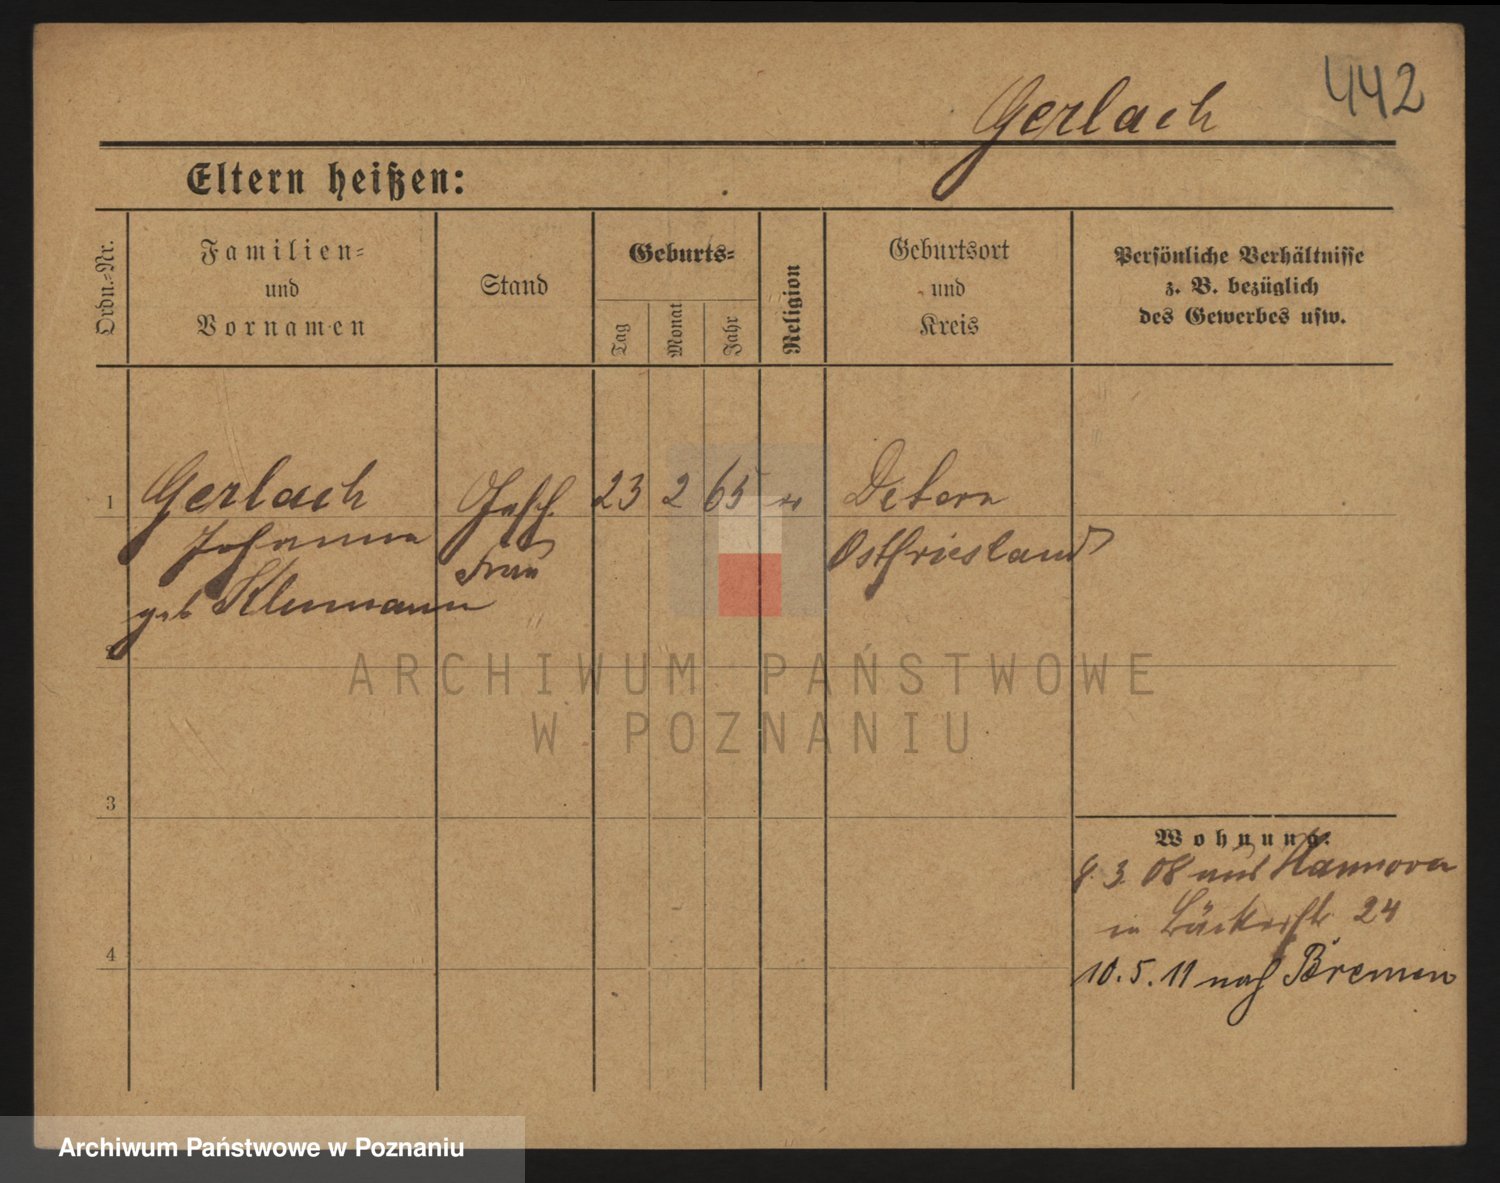 442
Gerlach
Eltern heißen:
Ordn.=Nr.
Familien=
und
Vornamen
Stand
Geburts=
Tag
Monat
Jahr
Religion
Geburtsort
und
Kreis
Persönliche Verhältnisse
z. B. bezüglich
des Gewerbes usw.
1
Gerlach
23
2
65
Detern
Johanna
Frau
Ostfriesland
geb
2
3
Wohnung:
3. 08 aus Hannover
in Bäckerstr 24
4
10. 5. 11 nach Bremen
ARCHIWUM PAŃSTWOWE
W POZNANIU
Archiwum Państwowe w Poznaniu